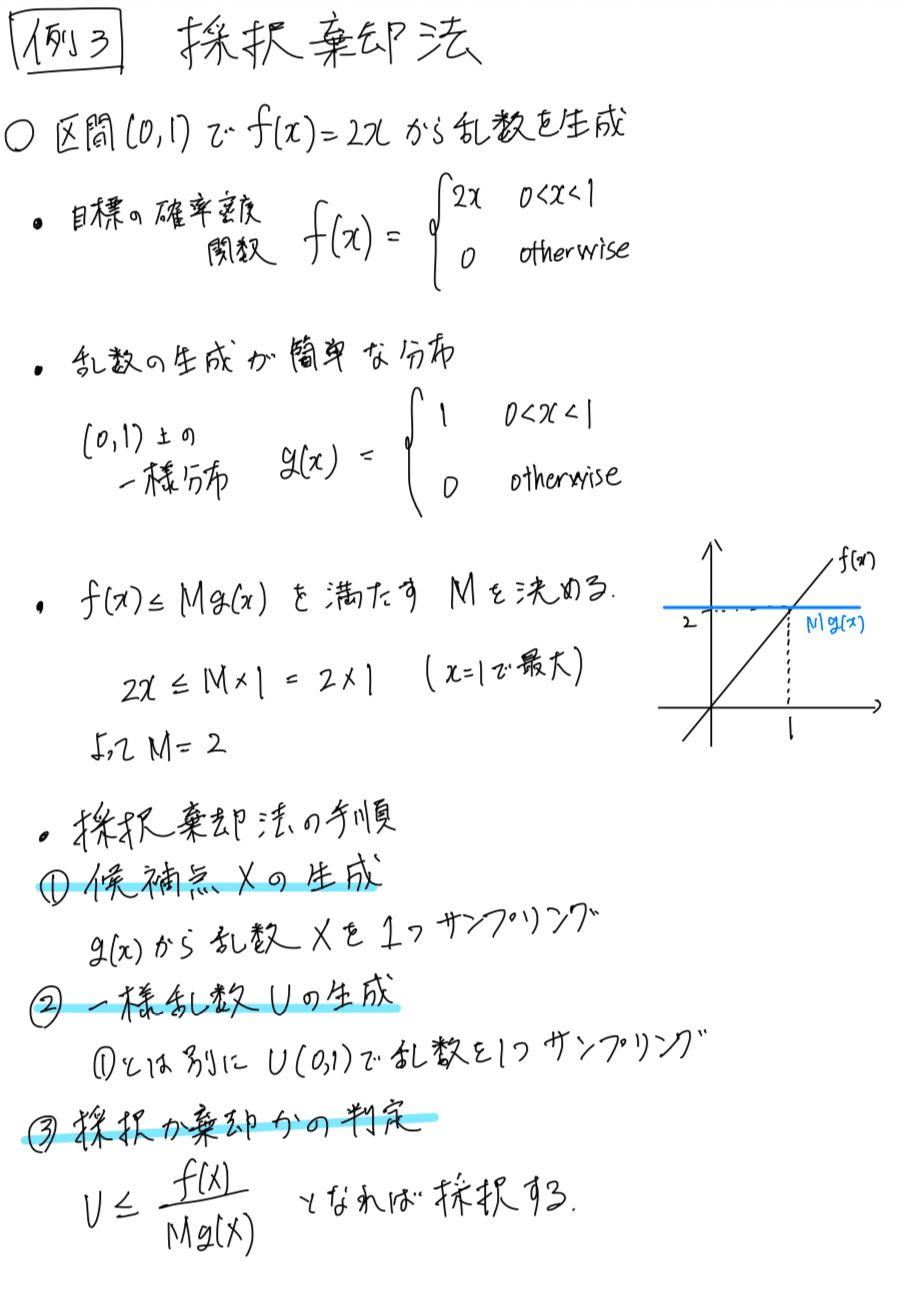 例3 採択棄却法
○ 区間(0,1)で f(x)=2x から乱数を生成
・目標の確率密度
関数 f(x) = { 2x 0<x<1
0 otherwise
・乱数の生成が簡単な分布
(0,1)上の
一様分布 g(x) = { 1 0<x<1
0 otherwise
・f(x) ≤ Mg(x) を満たす M を決める.
2x ≤ M×1 = 2×1 (x=1で最大)
よって M = 2
f(x)
2
Mg(x)
1
・採択棄却法の手順
① 候補点 X の生成
g(x)から乱数 X を 1つサンプリング
② 一様乱数 U の生成
①とは別に U(0,1)で乱数を1つサンプリング
③ 採択か棄却かの判定
U ≤ f(X) / Mg(X) となれば採択する.